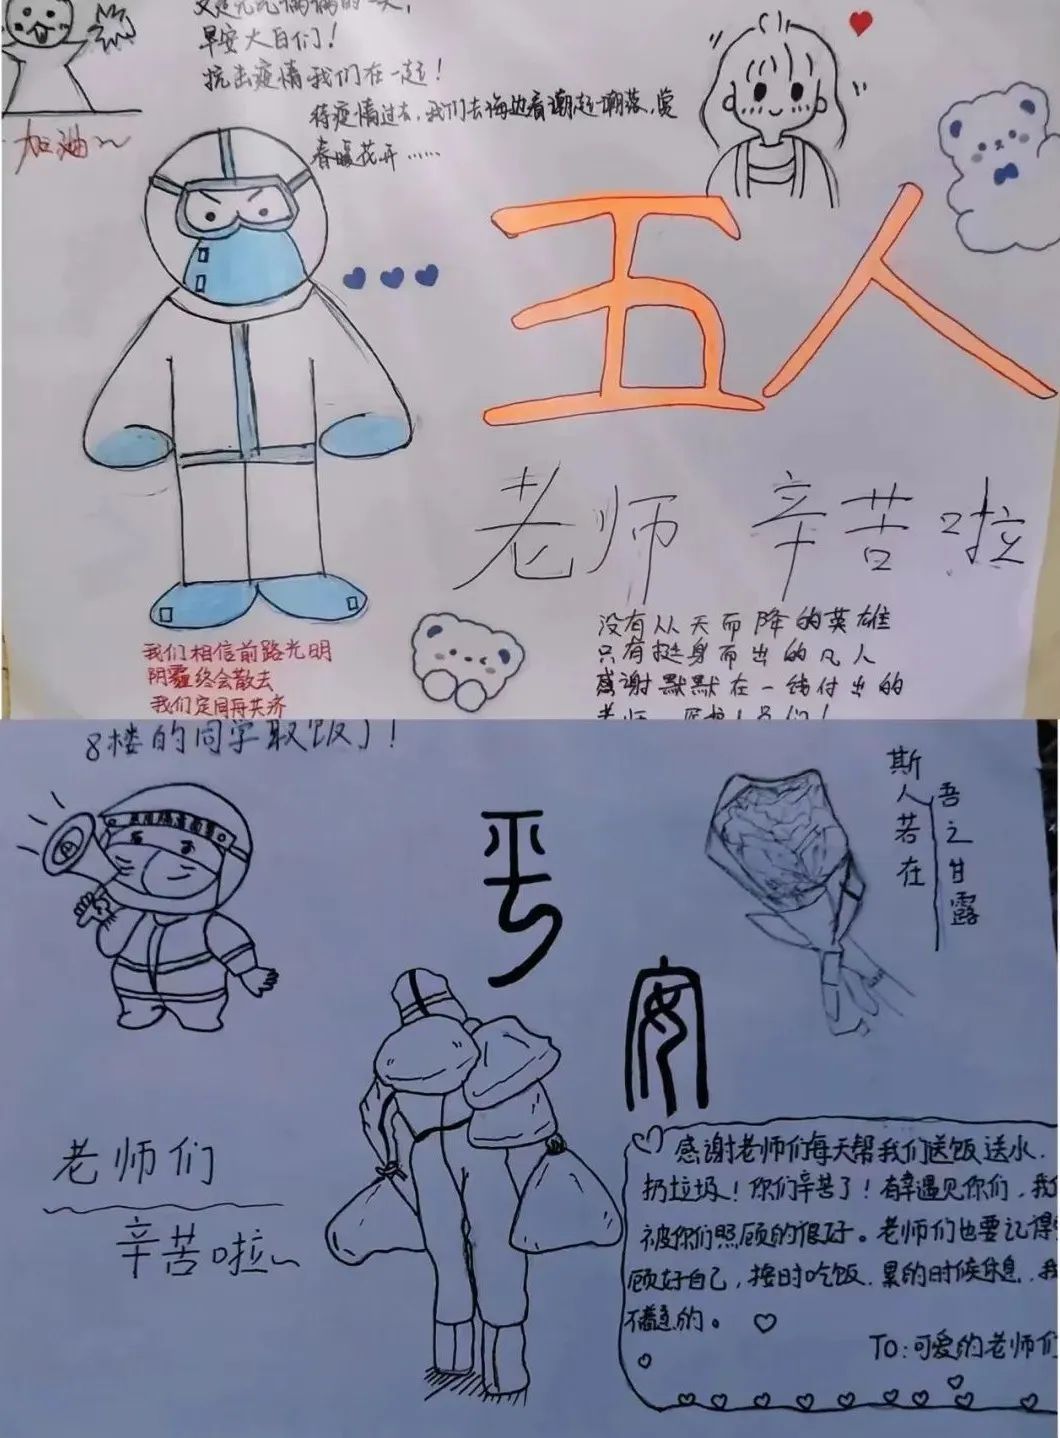 早安大白们！
抗击疫情我们在一起！
待疫情过去，我们去海边看潮起潮落，赏
春暖花开……
加油～
五人
老师 辛苦啦
我们相信前路光明
阴霾终会散去
我们定同舟共济
没有从天而降的英雄
只有挺身而出的凡人
感谢默默在一线付出的
8楼的同学取饭了！
平安
斯人若在
吾之甘露
老师们
辛苦啦～
感谢老师们每天帮我们送饭送水，
扔垃圾！你们辛苦了！有幸遇见你们，我们
被你们照顾的很好。老师们也要记得
顾好自己，按时吃饭，累的时候休息，我
不着急的。
TO：可爱的老师们